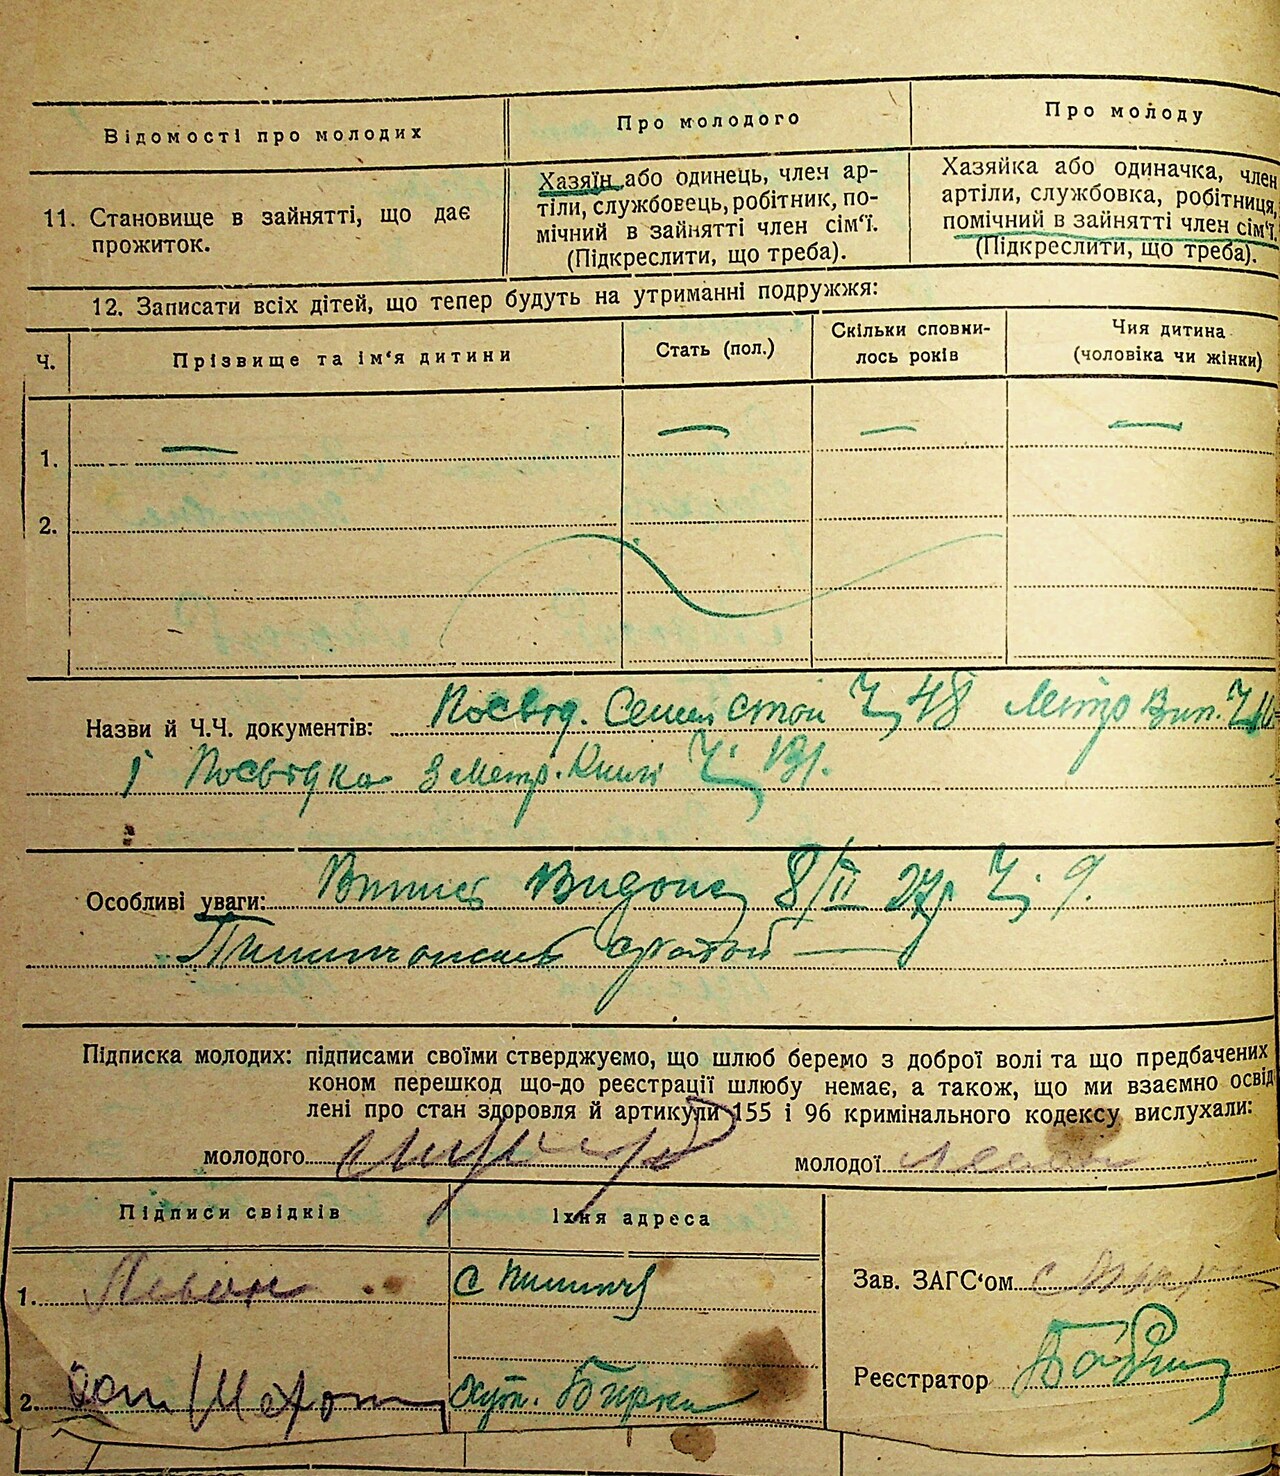 Відомості про молодих
Про молодого
Про молоду
11. Становище в зайнятті, що дає
прожиток.
Хазяїн або одинець, член ар-
тіли, службовець, робітник, по-
мічний в зайнятті член сім‘ї.
(Підкреслити, що треба).
Хазяйка або одиначка, член
артіли, службовка, робітниця,
помічний в зайнятті член сім‘ї.
(Підкреслити, що треба).
12. Записати всіх дітей, що тепер будуть на утриманні подружжя:
Ч.
Прізвище та ім‘я дитини
Стать (пол.)
Скільки сповни-
лось років
Чия дитина
(чоловіка чи жінки)
1. — — — —
2.
Назви й Ч.Ч. документів: Посвід. Ч. 48 Метр Вип. Ч.
і Посвідка з Метр. Книги Ч. 131.
Особливі уваги: Витяг Видано 8/II 27р Ч. 9.
Підписка молодих: підписами своїми стверджуємо, що шлюб беремо з доброї волі та що предбачених
коном перешкод що-до реєстрації шлюбу немає, а також, що ми взаємно освід
лені про стан здоровля й артикули 155 і 96 кримінального кодексу вислухали:
молодого
молодої
Підписи свідків
Їхня адреса
1. с
2. Хут. Бирки
Зав. ЗАГС‘ом
Реєстратор